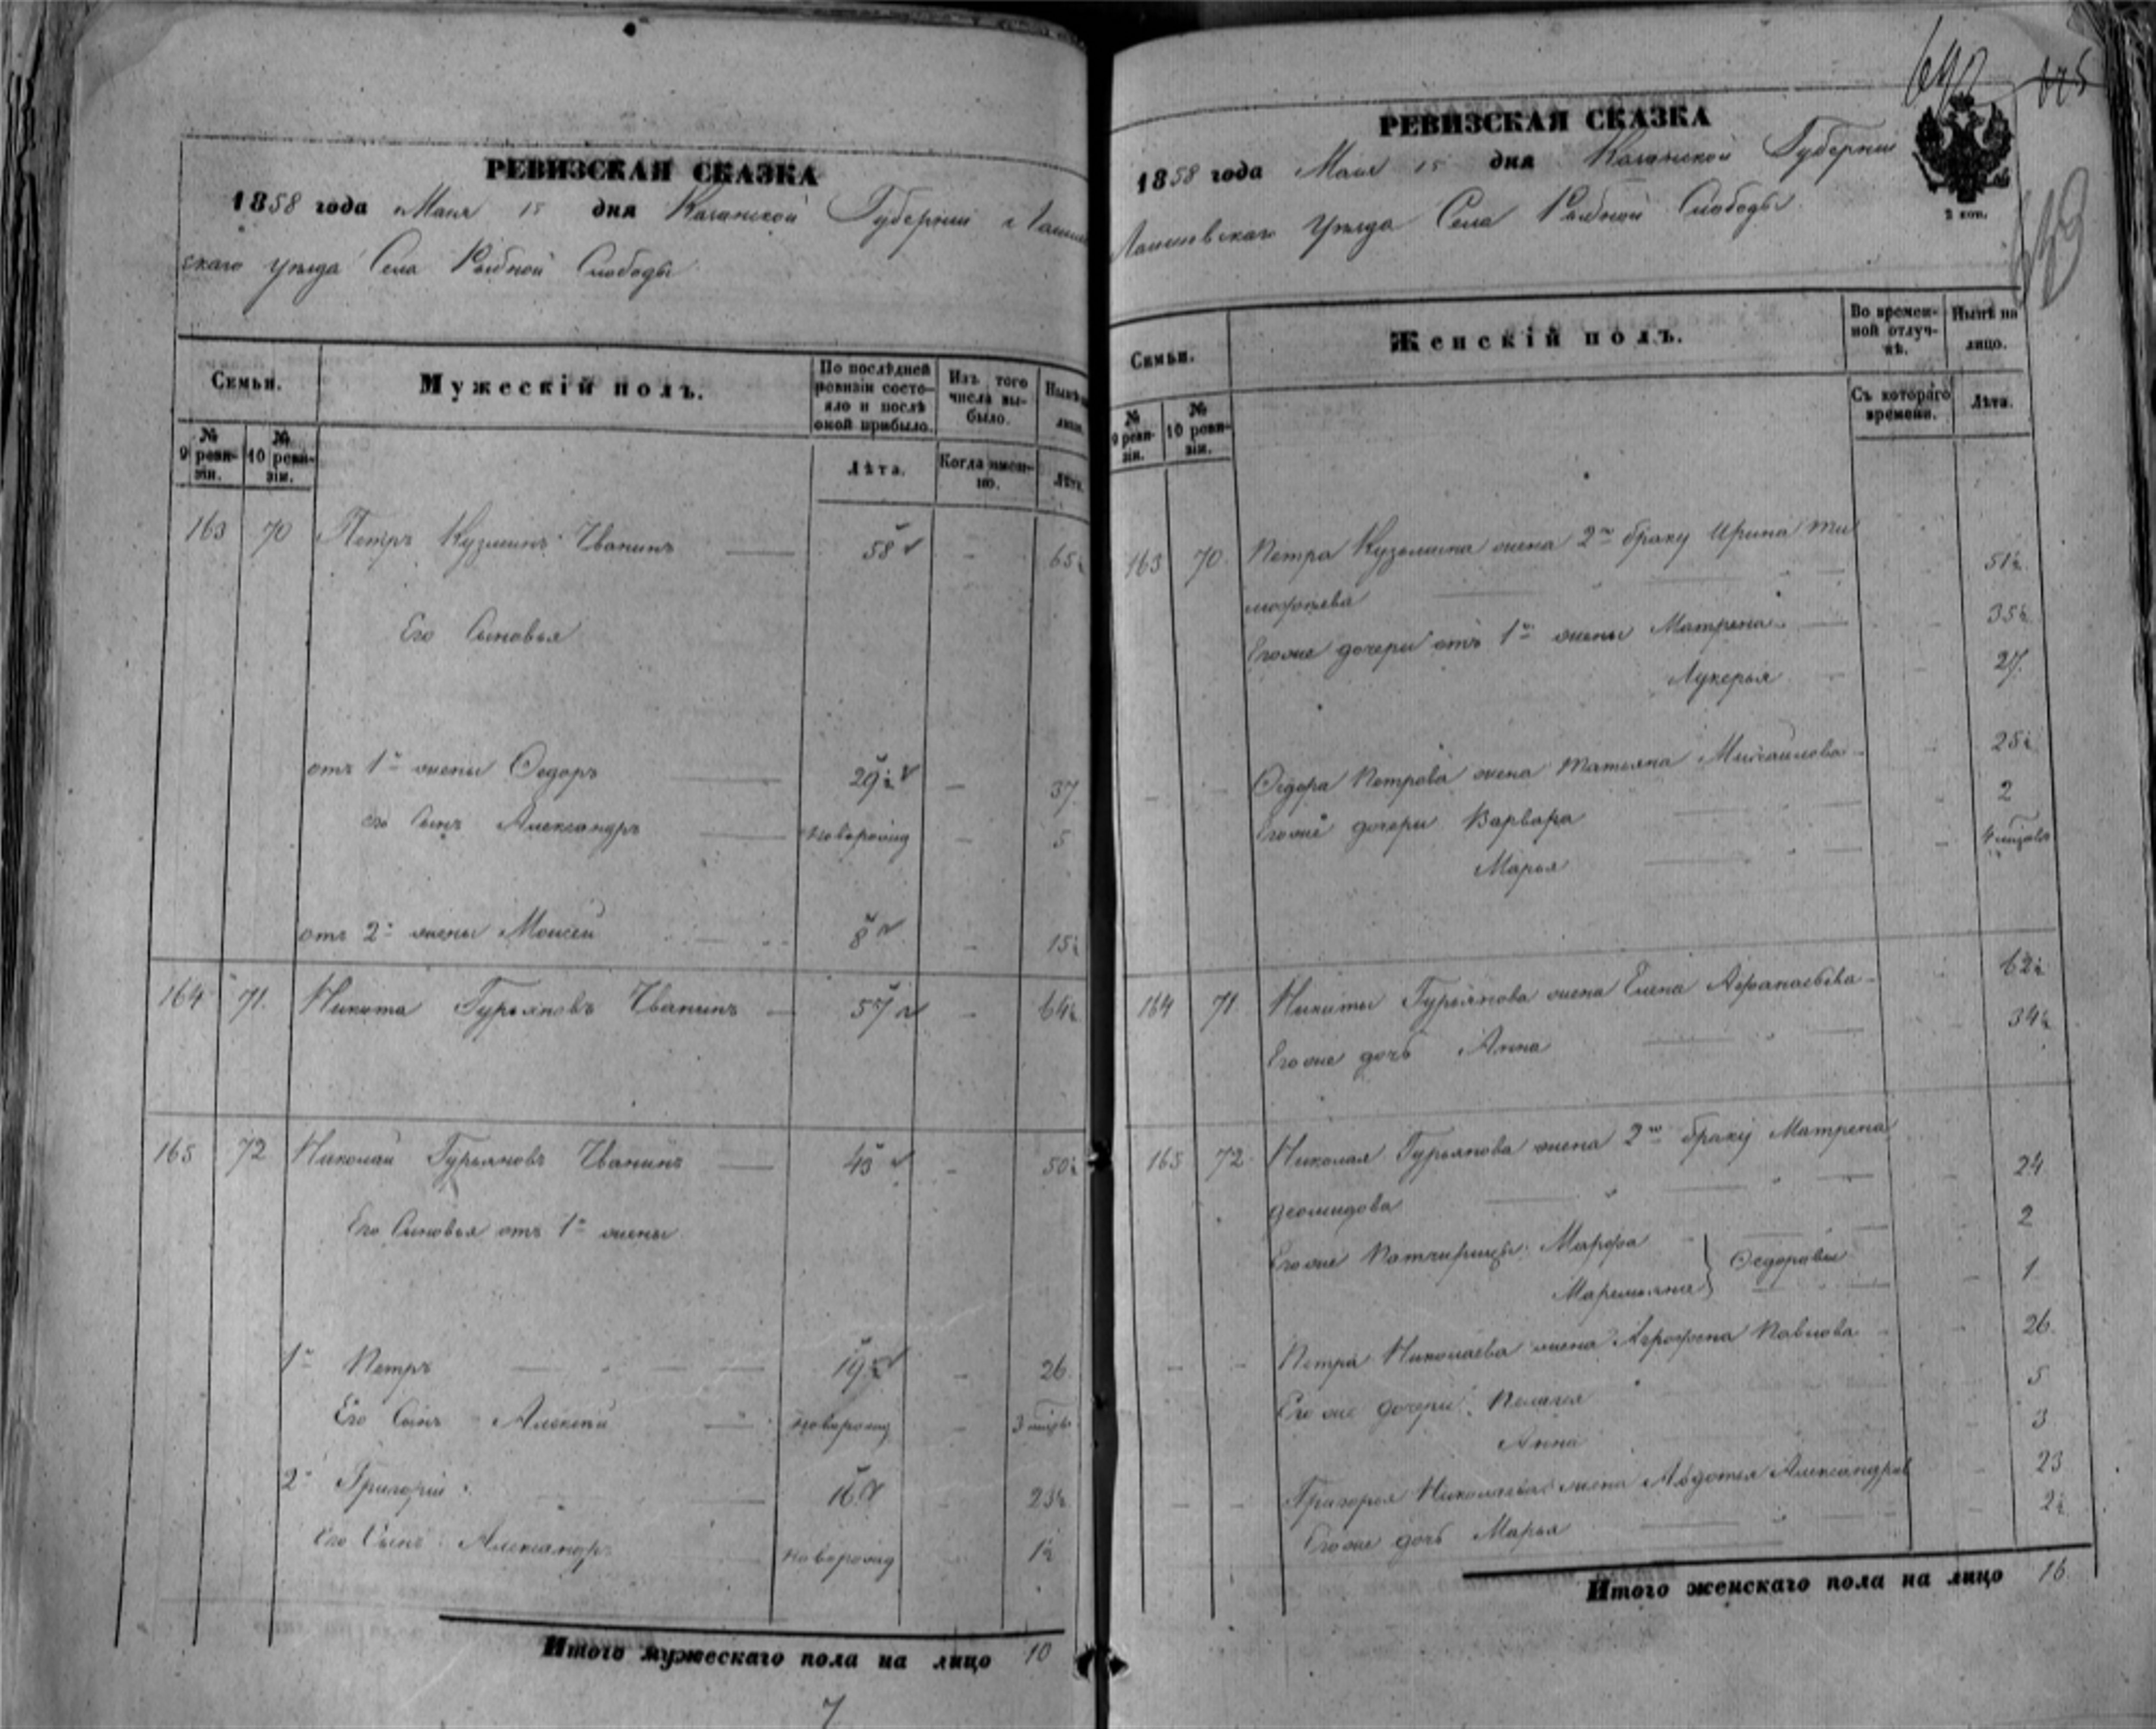 РЕВИЗСКАЯ СКАЗКА
1858 года Мая 15 дня Казанской Губернии Лаишев
скаго уѣзда Села Рыбной Слободы
Семьи.
Мужескій полъ.
По послѣдней ревизіи состояло и послѣ оной прибыло.
Изъ того числа выбыло.
Нынѣ на лицо.
№ 9 ревизіи.
№ 10 ревизіи.
Лѣта.
Когда именно.
Лѣта.
163 70 Петръ Кузминъ Иванинъ 58 — 65½
Его Сыновья
отъ 1й жены Ѳедоръ 29½ — 37
его Сынъ Александръ новорожд — 5
отъ 2й жены Моисей 8 — 15½
164 71. Никита Гурьяновъ Иванинъ — 57 — 64½
165 72 Николай Гурьяновъ Иванинъ 43 — 50½
Его Сыновья отъ 1й жены
1й Петръ 19½ — 26
Его Сынъ Алексѣй новорожд — 3 мѣсяц
2й Григорій 16 23½
Его Сынъ Александръ новорожд 1½
Итого мужескаго пола на лицо 10
7
690
РЕВИЗСКАЯ СКАЗКА
1858 года Мая 15 дня Казанской Губерніи
2 коп.
Лаишевскаго Уѣзда Села Рыбной Слободы
Семьи.
Женскій полъ.
Во временной отлучкѣ.
Нынѣ на лицо.
№ 9 ревизіи.
№ 10 ревизіи.
Съ котораго времени.
Лѣта.
163 70. Петра Кузьмина жена 2го браку Ирина Ти
мофѣева 51½
Егоже дочери отъ 1й жены Матрена 35½
Лукерья 27.
Ѳедора Петрова жена Татьяна Михаилова 25½
Егоже дочери Варвара 2
Марья 4 мѣсяц
164 71. Никиты Гурьянова жена Елена Афанасьева 62½
Егоже дочь Анна 34½
165 72. Николая Гурьянова жена 2го браку Матрена
Деомидова 24
Егоже Патчерицы Марфа 2
Маремьяна } Ѳедоровы 1
Петра Николаева жена Аграфена Павлова 26.
Его же дочери Пелагея 5
Анна 3
Григорья Николаева жена Авдотья Александров 23
Егоже дочь Марья 2½
Итого женскаго пола на лицо 16